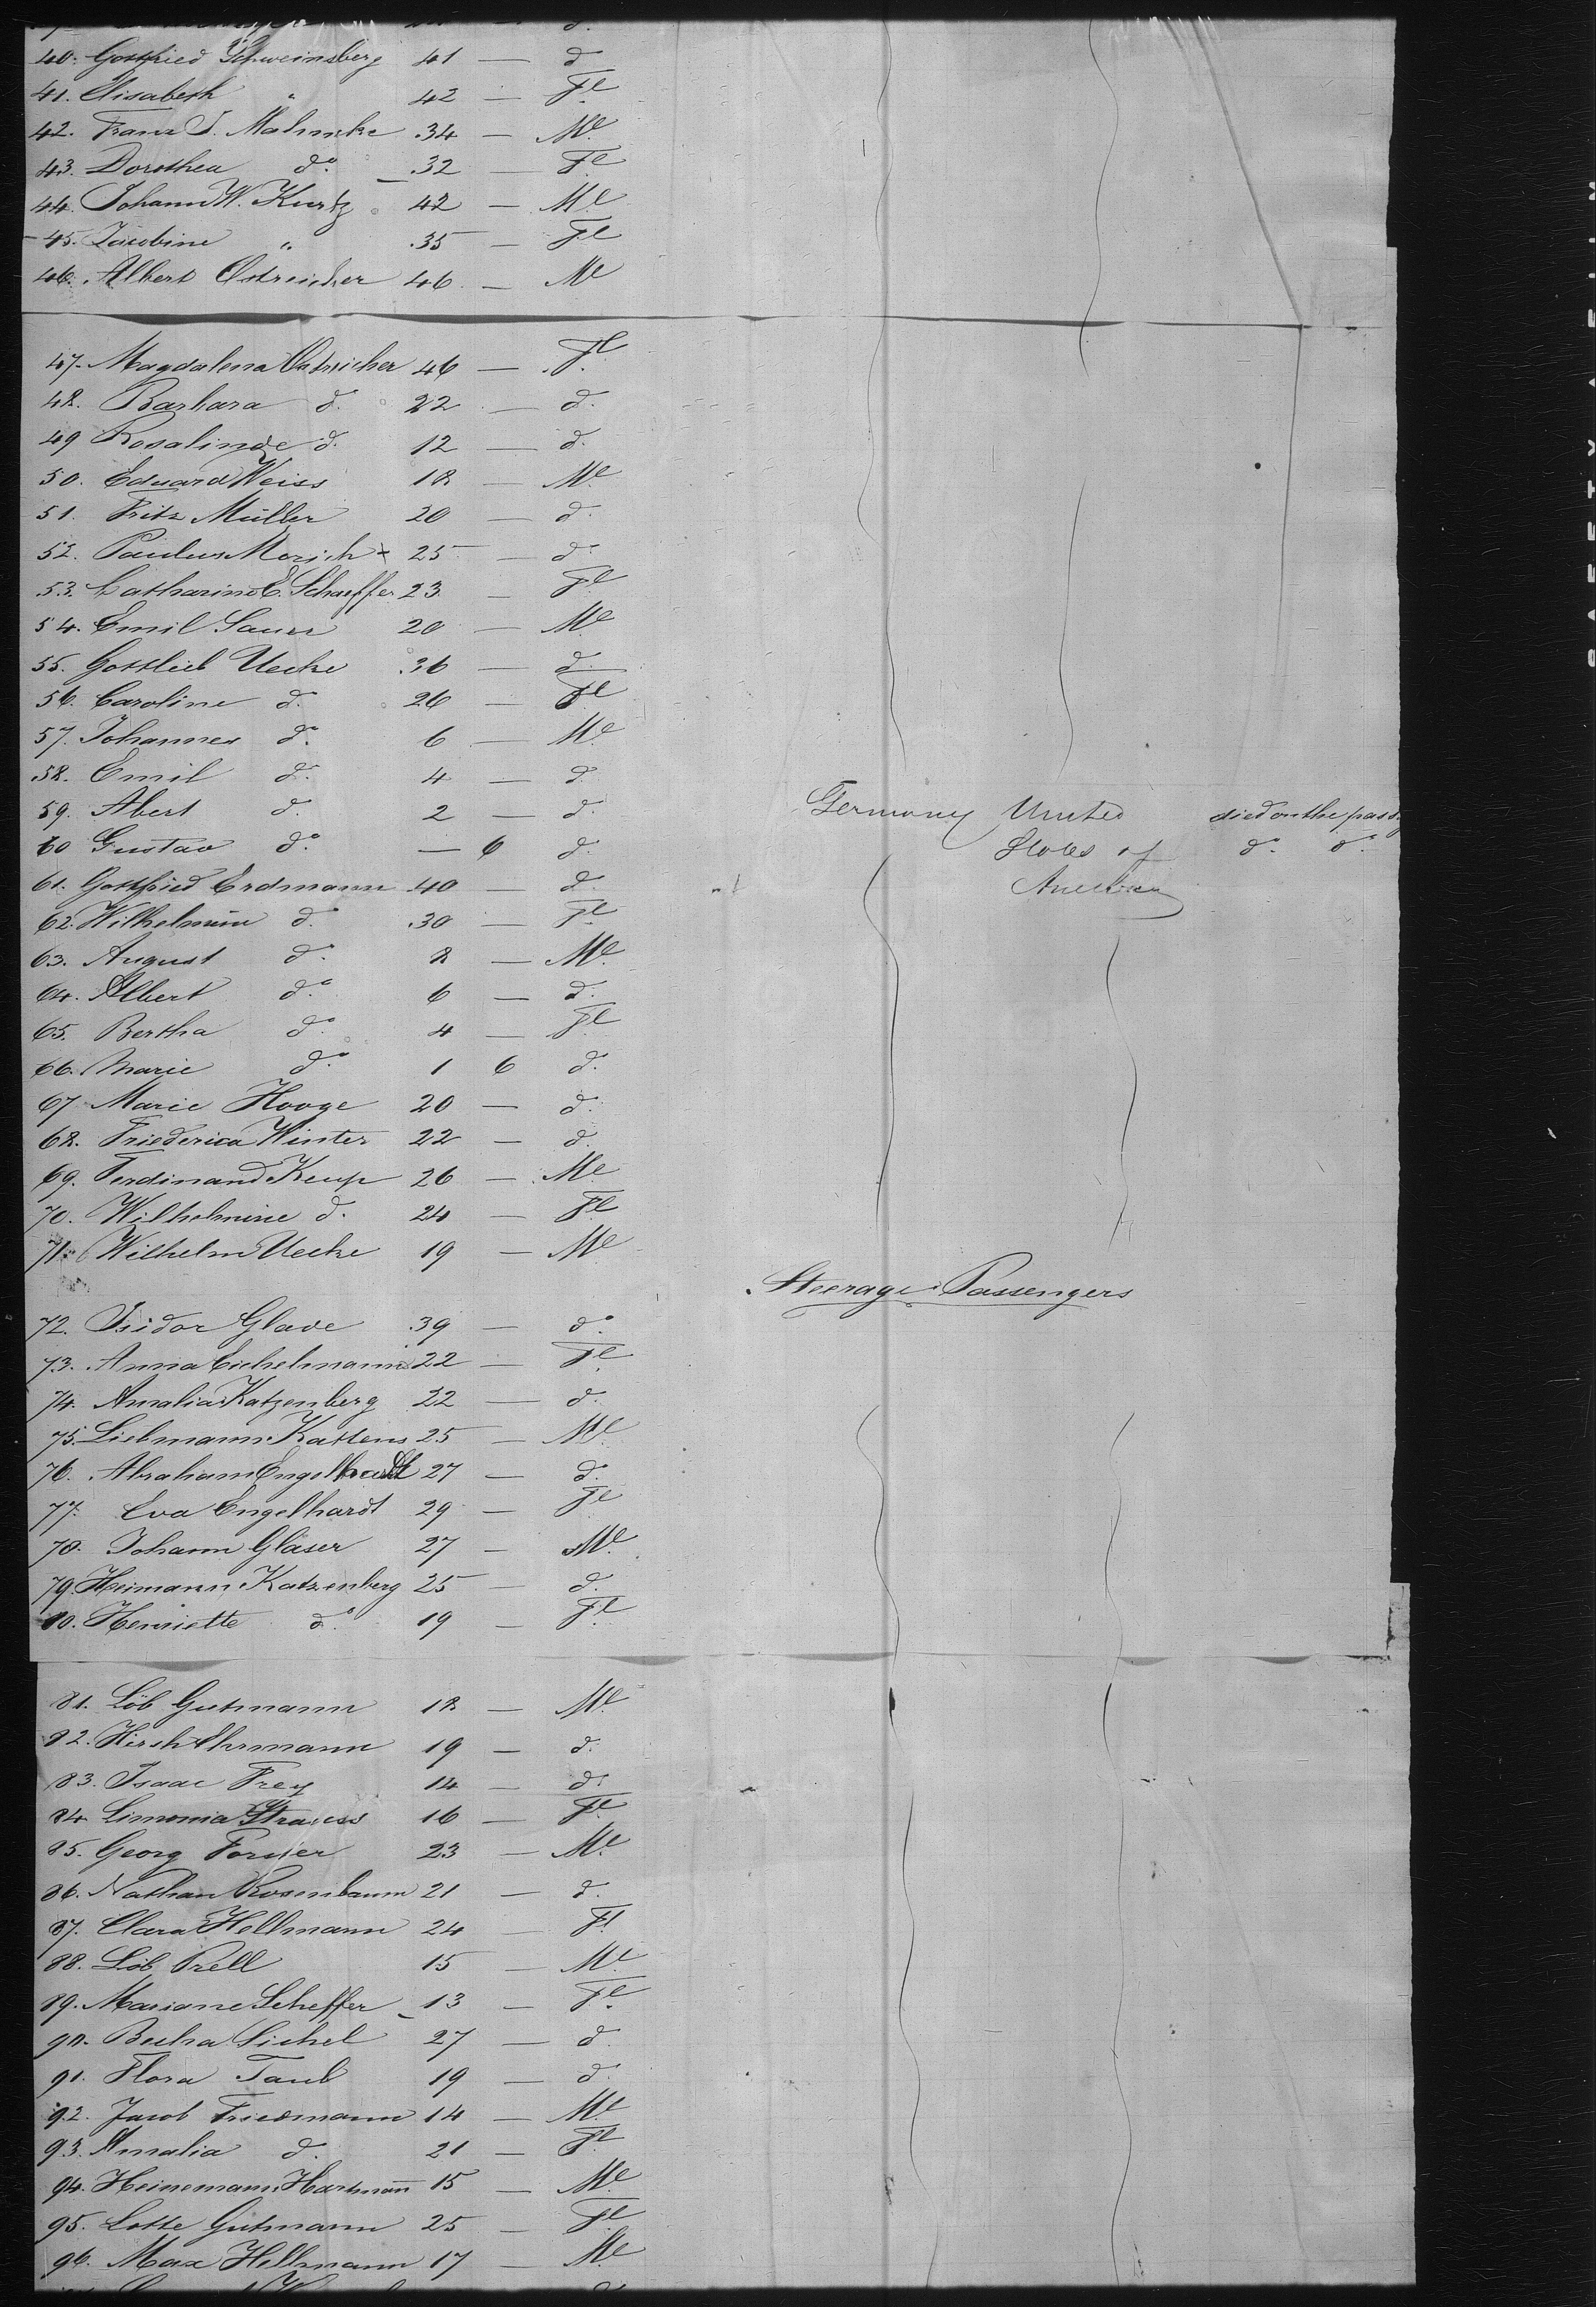 40. Gottfried Schweinsberg 41 — d
41. Elisabeth " 42 — Fl
42. Franz J. Mahnke 34 — Ml
43. Dorothea do. 32 — Fl
44. Johann W. Kurtz 42 — Ml
45. Jacobine " 35 — Fl
46. Albert Ostreicher 46 — Ml
47. Magdalena Ostreicher 46 — Fl
48. Barbara d. 22 — d.
49 Rosalinde d. 12 — d.
50. Eduard Weiss 18 — Ml
51. Fritz Müller 20 — d.
52. Paulus Morich x 25 — do
53. Catharine E. Schaeffer 23 — Fl
54. Emil Sauer 20 — Ml
55. Gottlieb Uecke 36 — d.
56. Caroline d. 26 — Fl
57. Johannes do. 6 — Ml
58. Emil do. 4 — d
59. Abert d. 2 — d. Germany United died on the pass
60 Gustav do. — 6 d. States of do. do.
61. Gottfried Erdmann 40 — d. America
62. Wilhelmine do. 30 — Fl
63. August do. 8 — Ml
64. Albert do. 6 — d.
65. Bertha do. 4 — Fl
66. Marie do. 1 6 d.
67 Marie Hooge 20 — d.
68. Friederica Winter 22 — d.
69. Ferdinand Keup 26 — Ml
70. Wilhelmine d. 24 — Fl
71. Wilhelm Uecke 19 — Ml
Steerage Passengers
72. Isidor Glave 39 — do.
73. Anna Eichelmann 22 — Fl
74. Amalia Katzenberg 22 — d.
75. Liebmann Kattens 25 — Ml
76. Abraham Engelhardt 27 — d.
77. Eva Engelhardt 29 — Fl
78. Johann Gläser 27 — Ml
79. Heimann Katzenberg 25 — d.
80. Henriette do. 19 — Fl
81. Löb Gutmann 18 — Ml
82. Hirsh Ehrmann 19 — d.
83. Isaac Frey 14 — d.
84 Simonia Strauss 16 — Fl
85. Georg 23 — Ml
86. Nathan Rosenbaum 21 — d.
87. Clara Hellmann 24 — Fl
88. Löb Prell 15 — Ml
89. Mariane Scheffer 13 — Fl
90. Becha Sichel 27 — d.
91. Flora Taub 19 — d.
92. Jacob Friedmann 14 — Ml
93. Amalia d. 21 — Fl
94. Heinemann Hartmann 15 — Ml
95. Lotte Gutmann 25 — Fl
96. Max Hellmann 17 — Ml